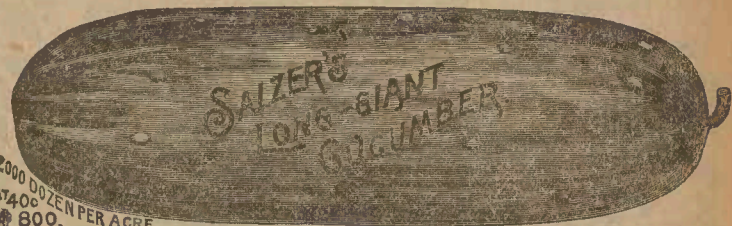 SALZER'S
LONG-GIANT
CUCUMBER
2000 DOZEN PER ACRE
AT 40¢
$ 800.